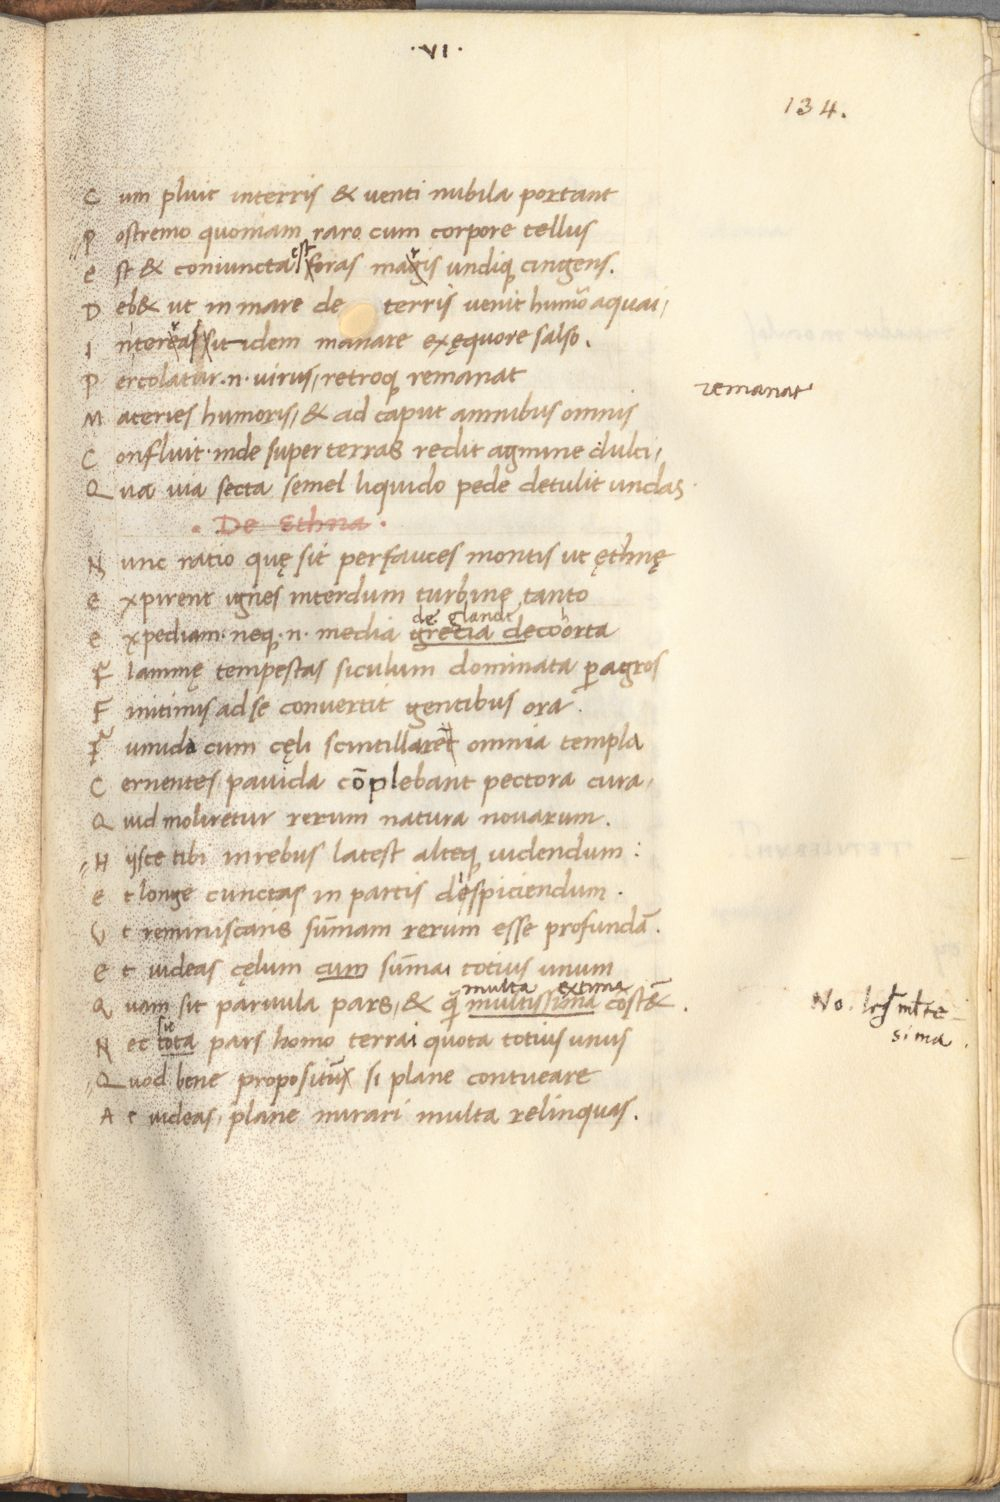 ·VI·
134.
C um pluit interris & venti nubila portant
P ostremo quoniam raro cum corpore tellus
e st & coniuncta est oras magis undiq; cingens.
D eb& ut in mare de terris venit humor aquai,
I n terras it idem manare exęquore salso.
P ercolatur .n. virus, retroq; remanat
remanat
M ateries humoris, & ad caput amnibus omnis
C onfluit. inde super terras redit agmine dulci,
Q ua via secta semel liquido pede detulit undas
· De Ethna ·
N unc ratio quę sit per fauces montis ut ęthnę
e xpirent ignes interdum turbine tanto
de glande
e xpediam. neq; .n. media grecia decoorta
F lammę tempestas siculum dominata p agros
F initimis ad se convertit gentibus ora.
F umida cum cęli scintillaret omnia templa
C ernentes pavida cōplebant pectora cura,
Q uid moliretur rerum natura novarum.
H ijsce tibi in rebus latest alteq; videndum:
e t longe cunctas in partis despiciendum.
U t reminiscaris sūmam rerum esse profundā.
e t videas cęlum cum sūmai totius unum
multa extima
Q uam sit parvula pars, & q̄ multissima cōst&.
No. leg. mlte
sima.
sit
N ec tota pars homo terrai quota totius unus
Q uod bene propositum si plane contueare
A t videas, plane mirari multa relinquas.